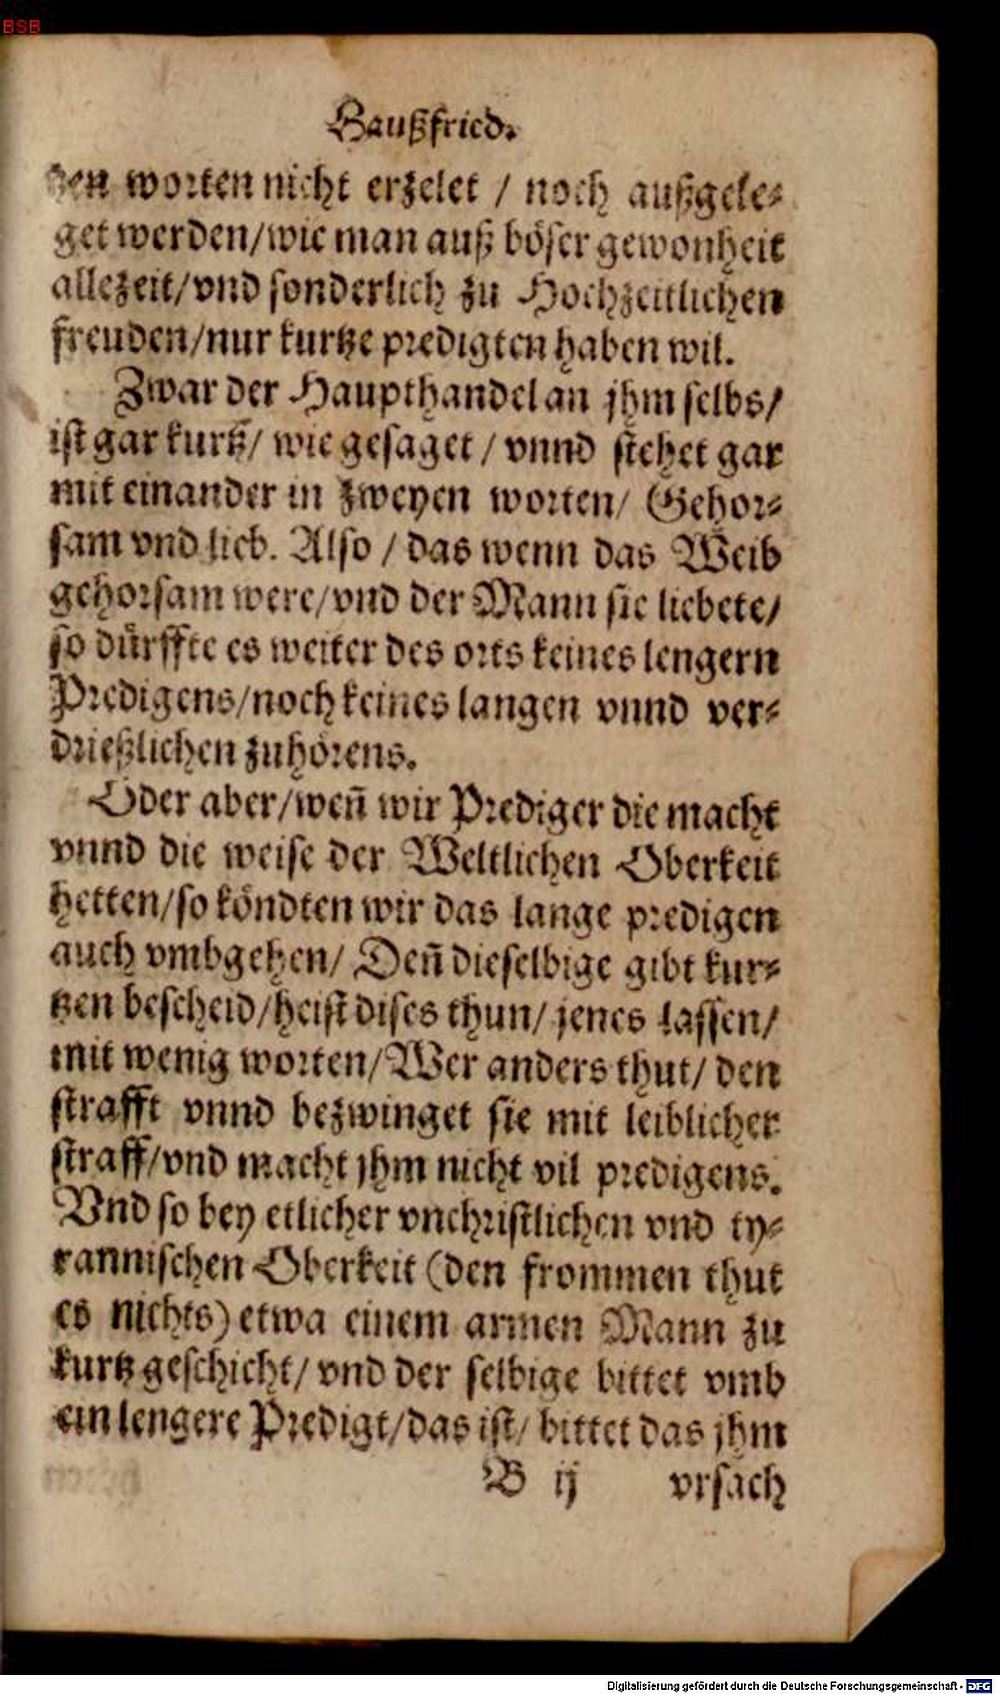 BSB
Haußfried.
tzen worten nicht erzelet / noch außgele⸗
get werden/wie man auß böser gewonheit
allezeit/vnd sonderlich zu Hochzeitlichen
freuden/nur kurtze predigten haben wil.
Zwar der Haupthandel an jhm selbs/
ist gar kurtz/ wie gesaget / vnnd stehet gar
mit einander in zweyen worten/ Gehor⸗
sam vnd lieb. Also / das wenn das Weib
gehorsam were/vnd der Mann sie liebete/
so dürffte es weiter des orts keines lengern
Predigens/noch keines langen vnnd ver⸗
drießlichen zuhörens.
Oder aber/weñ wir Prediger die macht
vnnd die weise der Weltlichen Oberkeit
hetten/so köndten wir das lange predigen
auch vmbgehen/ Deñ dieselbige gibt kur⸗
tzen bescheid/heist dises thun/ jenes lassen/
mit wenig worten/Wer anders thut/ den
strafft vnnd bezwinget sie mit leiblicher
straff/vnd macht jhm nicht vil predigens.
Vnd so bey etlicher vnchristlichen vnd ty⸗
rannischen Oberkeit (den frommen thut
es nichts) etwa einem armen Mann zu
kurtz geschicht/ vnd der selbige bittet vmb
ein lengere Predigt/das ist/ bittet das jhm
B ij vrsach
Digitalisierung gefördert durch die Deutsche Forschungsgemeinschaft - DFG